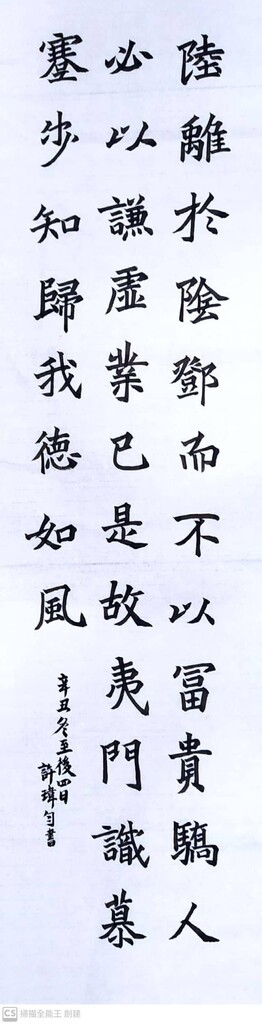 陸離於陰鄧而不以冨貴驕人
必以謙虛業已是故夷門識慕
塞步知歸我德如風
辛丑冬至後四日
許瑋勻書
CS 掃描全能王 創建